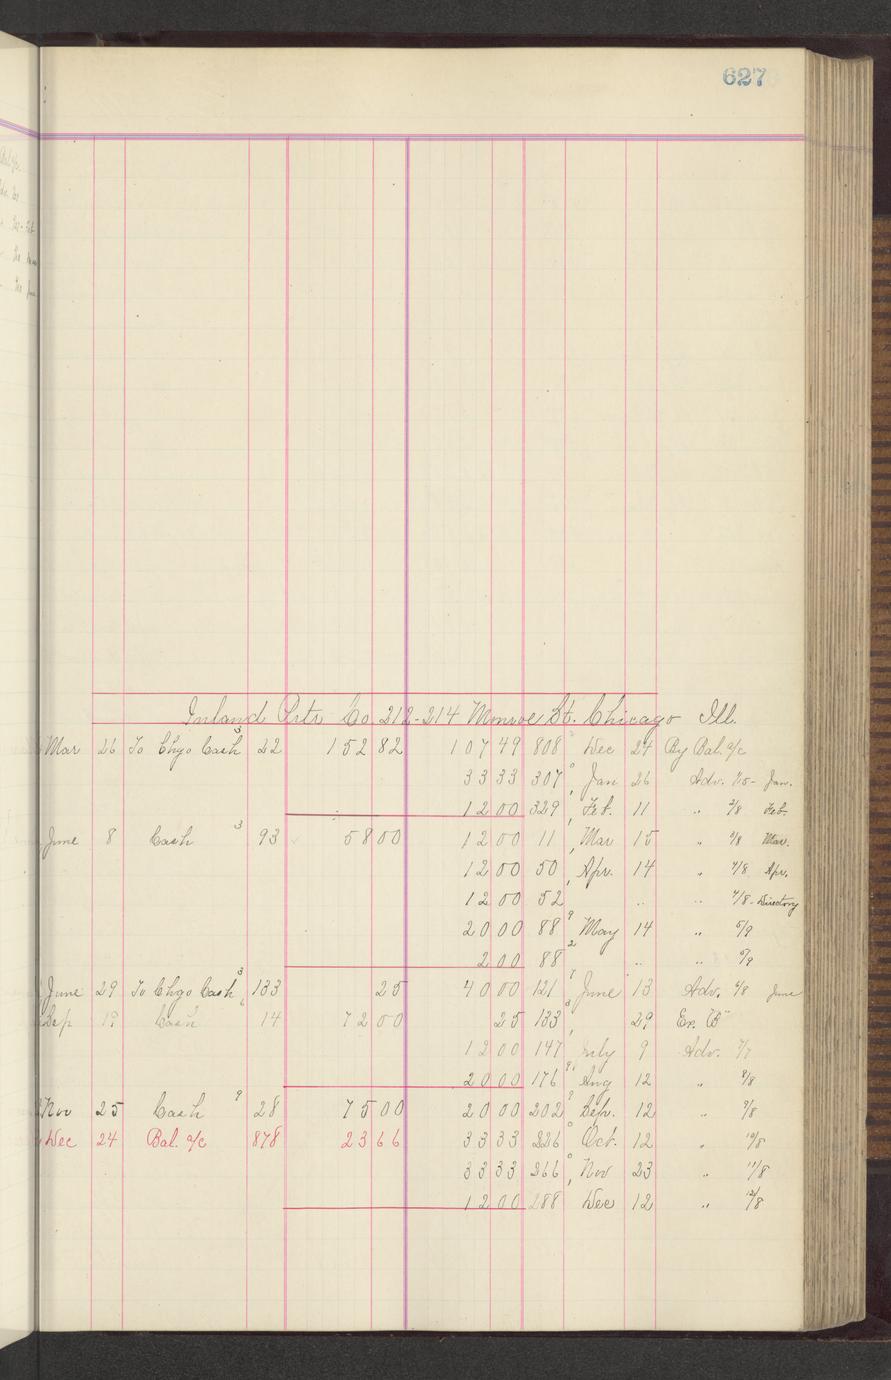 627
Inland Prtr Co. 212-214 Monroe St. Chicago Ill.
Mar 26 To Chgo Cash 3 22 152 82 107 49 808 Dec 24 By Bal. a/c
33 33 307 Jan 26 Adv. Jan.
12 00 329 Feb. 11 " 2/8 Feb.
June 8 Cash 3 93 58 00 12 00 11 Mar 15 " 3/8 Mar.
12 00 50 Apr. 14 " 4/8 Apr.
12 00 52 " " 4/8 - Directory
20 00 88 May 14 " 5/9
2 00 88 " " 5/9
June 29 To Chgo Cash 3 133 25 40 00 121 June 13 Adv. 6/8 June
Sep 19 Cash 6 14 72 00 25 133 29 Ex. "B"
12 00 147 July 9 Adv. 7/7
20 00 176 Aug 12 " 8/8
Nov 25 Cash 9 28 75 00 20 00 202 Sep. 12 " 9/8
Dec 24 Bal. a/c 878 23 66 33 33 226 Oct. 12 " 10/8
33 33 266 Nov 23 " 11/8
12 00 288 Dec 12 " 12/8